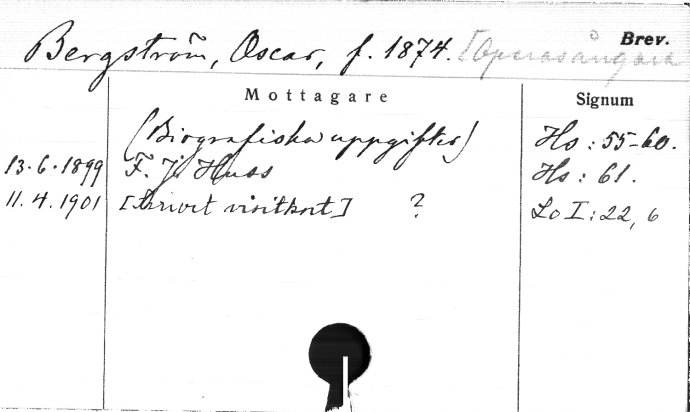 Brev.
Bergström, Oscar, f. 1874. [Operasångare
Mottagare Signum
(Biografiska uppgifter) Hs: 55-60.
13.6.1899 F. J. Huss Hs: 61.
11.4.1901 [skrivet visitkort] ? Lo I: 22, 6